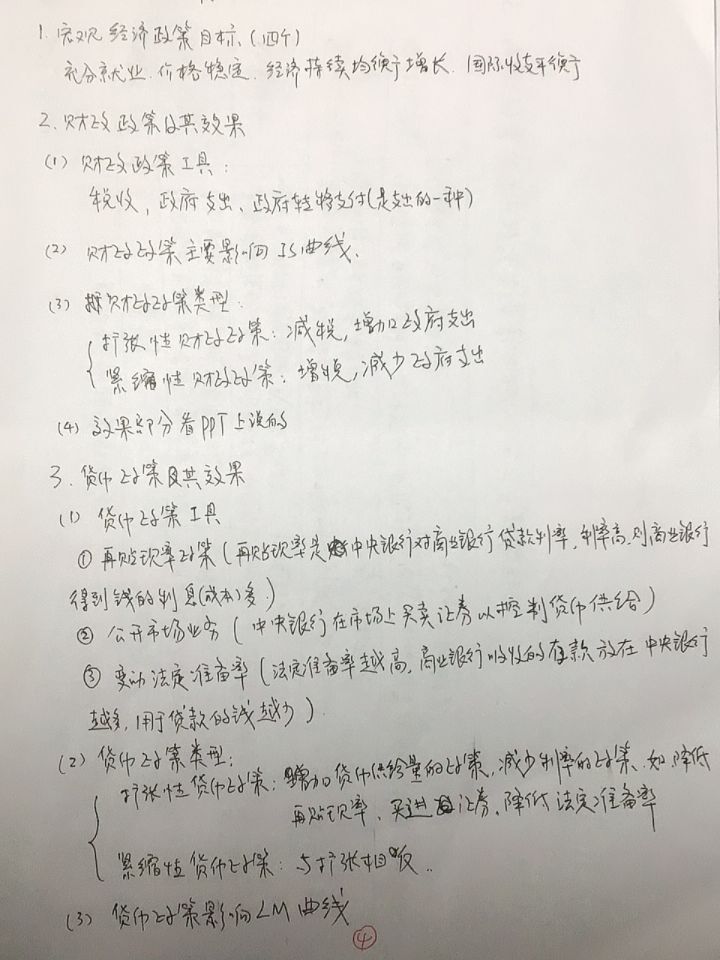 1. 宏观经济政策目标、(四个)
充分就业、价格稳定、经济持续均衡增长、国际收支平衡
2. 财政政策及其效果
(1) 财政政策工具：
税收，政府支出、政府转移支付(是支出的一种)
(2) 财政政策主要影响IS曲线、
(3) 财政政策类型：
扩张性财政政策：减税，增加政府支出
紧缩性财政政策：增税，减少政府支出
(4) 效果部分看PPT上说的
3. 货币政策及其效果
(1) 货币政策工具
① 再贴现率政策 (再贴现率是中央银行对商业银行贷款利率，利率高，则商业银行
得到钱的利息(成本)多.)
② 公开市场业务 (中央银行在市场上买卖证券以控制货币供给)
③ 变动法定准备率 (法定准备率越高，商业银行吸收的存款放在中央银行
越多，用于贷款的钱越少).
(2) 货币政策类型：
扩张性货币政策：增加货币供给量的政策，减少利率的政策、如降低
再贴现率、买进证券、降低法定准备率
紧缩性货币政策：与扩张相反..
(3) 货币政策影响LM曲线
④